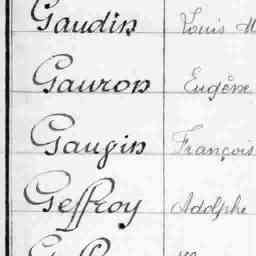 Gaudin Louis M
Gauron Eugène
Gaugin François
Geffroy Adolphe